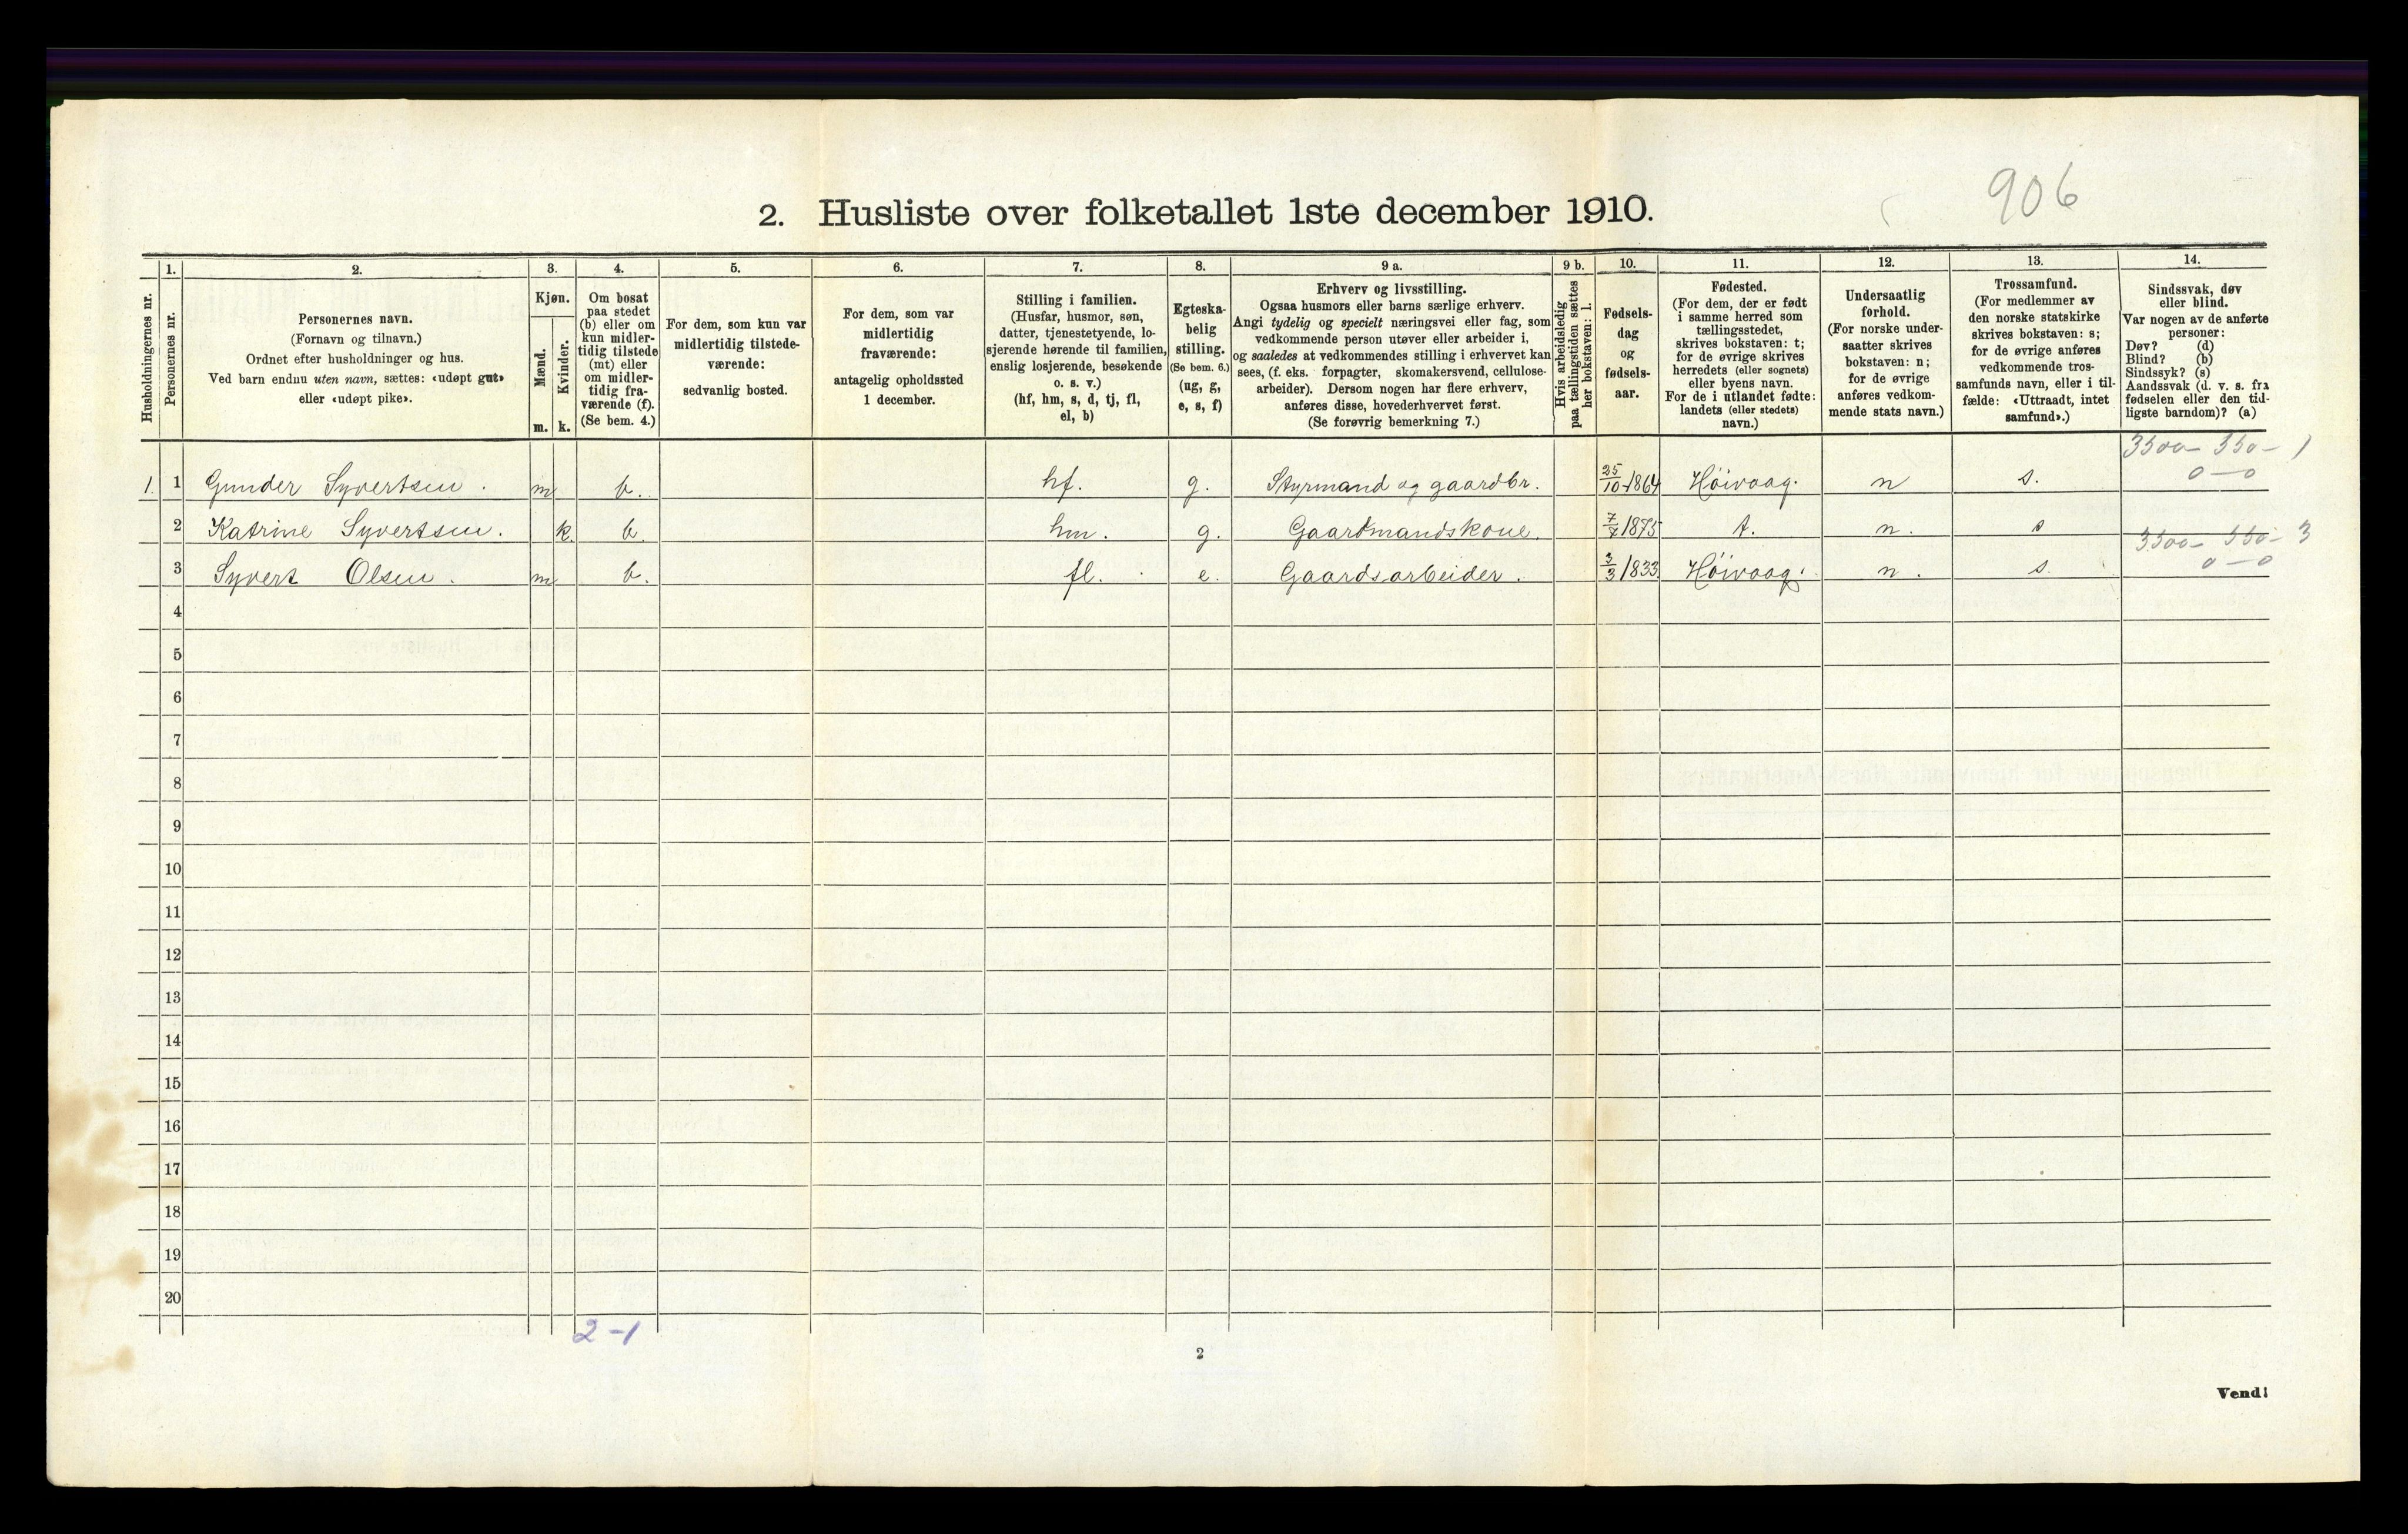 906
2. Husliste over folketallet 1ste december 1910.
Husholdningernes nr.
1.
Personernes nr.
2.
Personernes navn.
(Fornavn og tilnavn.)
Ordnet efter husholdninger og hus.
Ved barn endnu uten navn, sættes: «udøpt gut»
eller «udøpt pike».
3.
Kjøn.
Mænd.
Kvinder.
m. k.
4.
Om bosat
paa stedet
(b) eller om
kun midler-
tidig tilstede
(mt) eller
om midler-
tidig fra-
værende (f).
(Se bem. 4.)
5.
For dem, som kun var
midlertidig tilstede-
værende:
sedvanlig bosted.
6.
For dem, som var
midlertidig
fraværende:
antagelig opholdssted
1 december.
7.
Stilling i familien.
(Husfar, husmor, søn,
datter, tjenestetyende, lo-
sjerende hørende til familien,
enslig losjerende, besøkende
o. s. v.)
(hf, hm, s, d, tj, fl,
el, b)
8.
Egteska-
belig
stilling.
(Se bem. 6.)
(ug, g,
e, s, f)
9 a.
Erhverv og livsstilling.
Ogsaa husmors eller barns særlige erhverv.
Angi tydelig og specielt næringsvei eller fag, som
vedkommende person utøver eller arbeider i,
og saaledes at vedkommendes stilling i erhvervet kan
sees, (f. eks. forpagter, skomakersvend, cellulose-
arbeider). Dersom nogen har flere erhverv,
anføres disse, hovederhvervet først.
(Se forøvrig bemerkning 7.)
9 b.
Hvis arbeidsledig
paa tællingstiden sættes
her bokstaven: l.
10.
Fødsels-
dag
og
fødsels-
aar.
11.
Fødested.
(For dem, der er født
i samme herred som
tællingsstedet,
skrives bokstaven: t;
for de øvrige skrives
herredets (eller sognets)
eller byens navn.
For de i utlandet fødte:
landets (eller stedets)
navn.)
12.
Undersaatlig
forhold.
(For norske under-
saatter skrives
bokstaven: n;
for de øvrige
anføres vedkom-
mende stats navn.)
13.
Trossamfund.
(For medlemmer av
den norske statskirke
skrives bokstaven: s;
for de øvrige anføres
vedkommende tros-
samfunds navn, eller i til-
fælde: «Uttraadt, intet
samfund».)
14.
Sindssvak, døv
eller blind.
Var nogen av de anførte
personer:
Døv? (d)
Blind? (b)
Sindssyk? (s)
Aandssvak (d. v. s. fra
fødselen eller den tid-
ligste barndom)? (a)
3500 - 350 - 1
0 — 0
1. 1 Gunder Syvertsen. m b. hf. g. Styrmand og gaardbr. 25/10 1864 Høivaag. n s.
2 Katrine Syvertsen. k. b. hm. g. Gaardmandskone. 7/7 1875 t. n. s
3500 - 350 - 3
0 — 0
3 Syvert Olsen. m b. fl. e. Gaardsarbeider. 3/3 1833 Høivaag. n. s.
4
5
6
7
8
9
10
11
12
13
14
15
16
17
18
19
20
2-1
2
Vend!